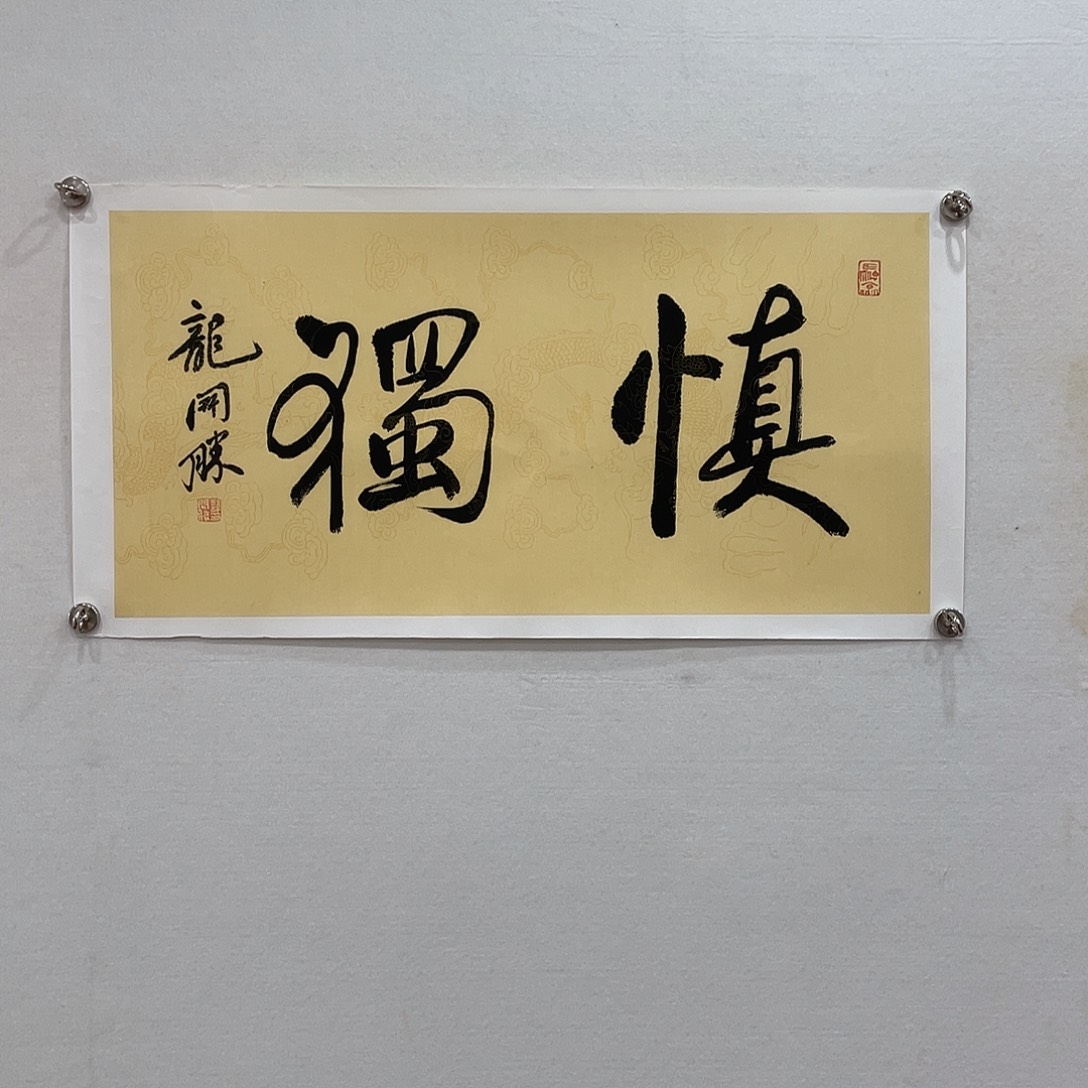 慎獨
龍開勝